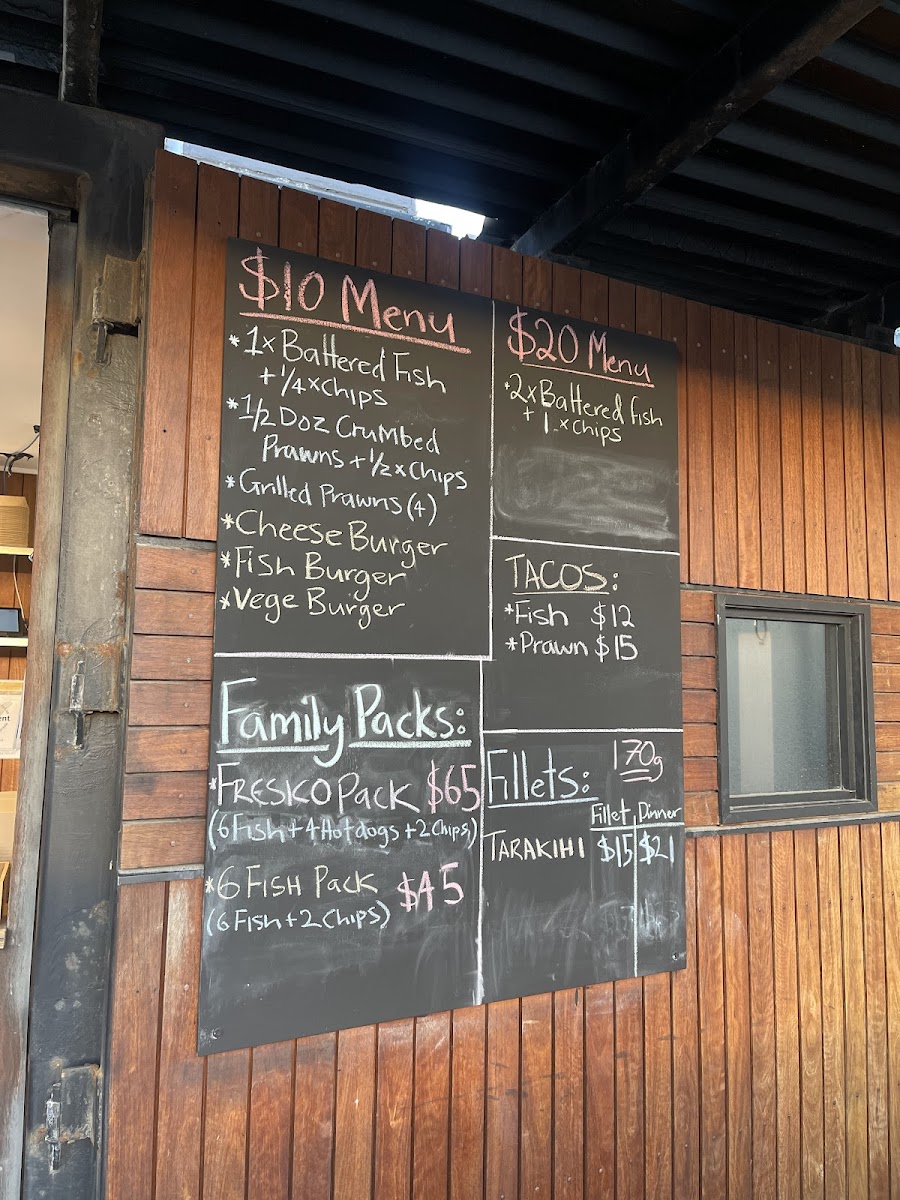 $10 Menu
*1x Battered Fish
+ 1/4 x chips
*1/2 Doz Crumbed
Prawns + 1/2 x Chips
*Grilled Prawns (4)
*Cheese Burger
*Fish Burger
*Vege Burger
$20 Menu
*2x Battered fish
+ 1 x chips
TACOS:
*Fish $12
*Prawn $15
Family Packs:
*FRESKO Pack $65
(6 Fish + 4 Hotdogs + 2 Chips)
*6 FISH Pack $45
(6 Fish + 2 Chips)
Fillets: 170g
Fillet Dinner
TARAKIHI $15 $21